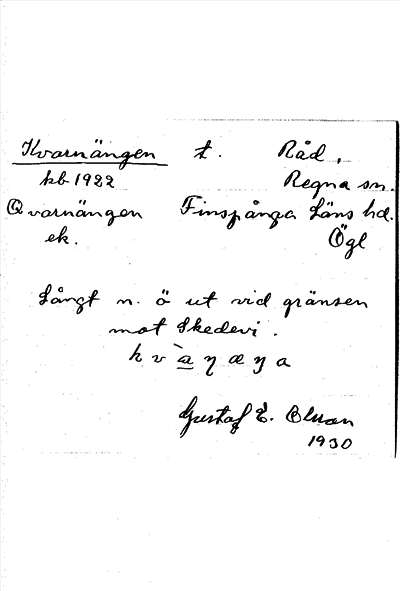 Kvarnängen t. Råd,
kb 1922 Regna sn.
Qvarnängen Finspånga Läns hd.
ek. Ögl
Långt n. ö ut vid gränsen
mot Skedevi.
Gustaf E. Olsson
1930